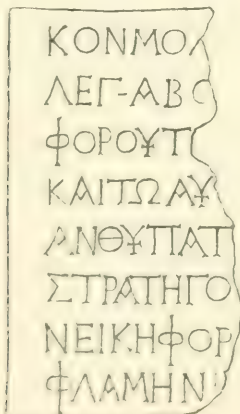 ΚΟΝΜΟΛ
ΛΕΓ-ΑΒϹ
ΦΟΡΟΥΤ
ΚΑΙΤΩΑΥ
ΑΝΘΥΠΑΤ
ΣΤΡΑΤΗΓΟ
ΝΕΙΚΗΦΟΡ
ΦΛΑΜΗΝ